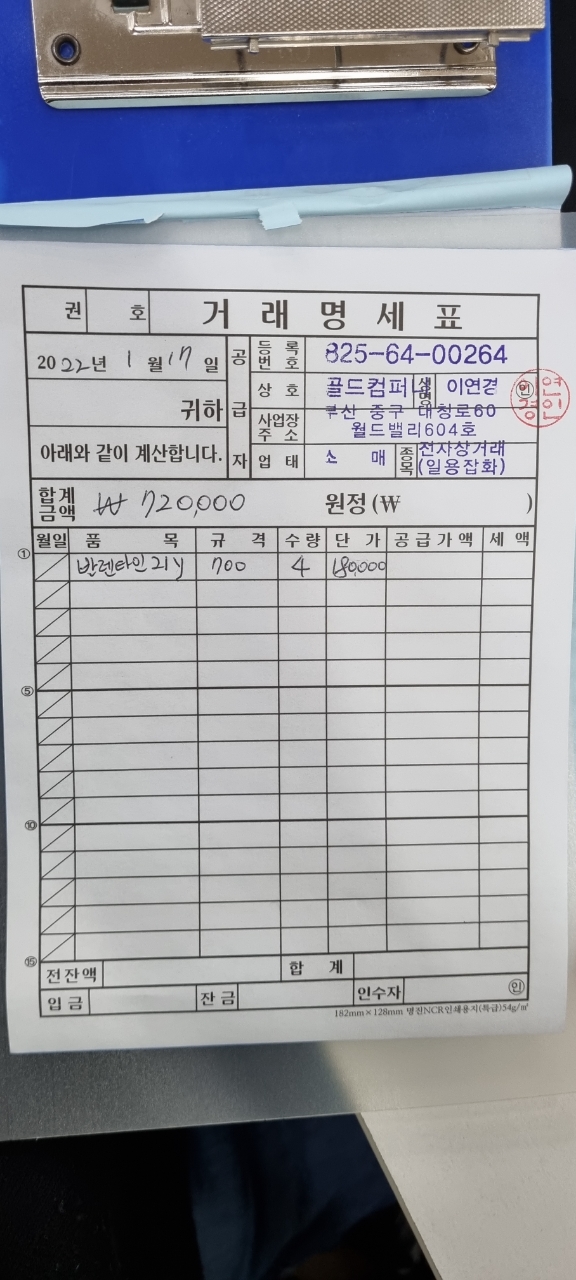 권 호 거래명세표
2022년 1월 17일
귀하
아래와 같이 계산합니다.
공급자
등록번호 825-64-00264
상호 골드컴퍼니 성명 이연경 ㊞
사업장주소 부산 중구 대청로60
월드밸리604호
업태 소매 종목 전자상거래
(일용잡화)
합계금액 ₩ 720,000 원정(₩ )
월일 품목 규격 수량 단가 공급가액 세액
① 발렌타인 21y 700 4 180,000
⑤
⑩
⑮
전잔액 합계
입금 잔금 인수자 ㊞
182mm×128mm 명진NCR인쇄용지(특급)54g/㎡